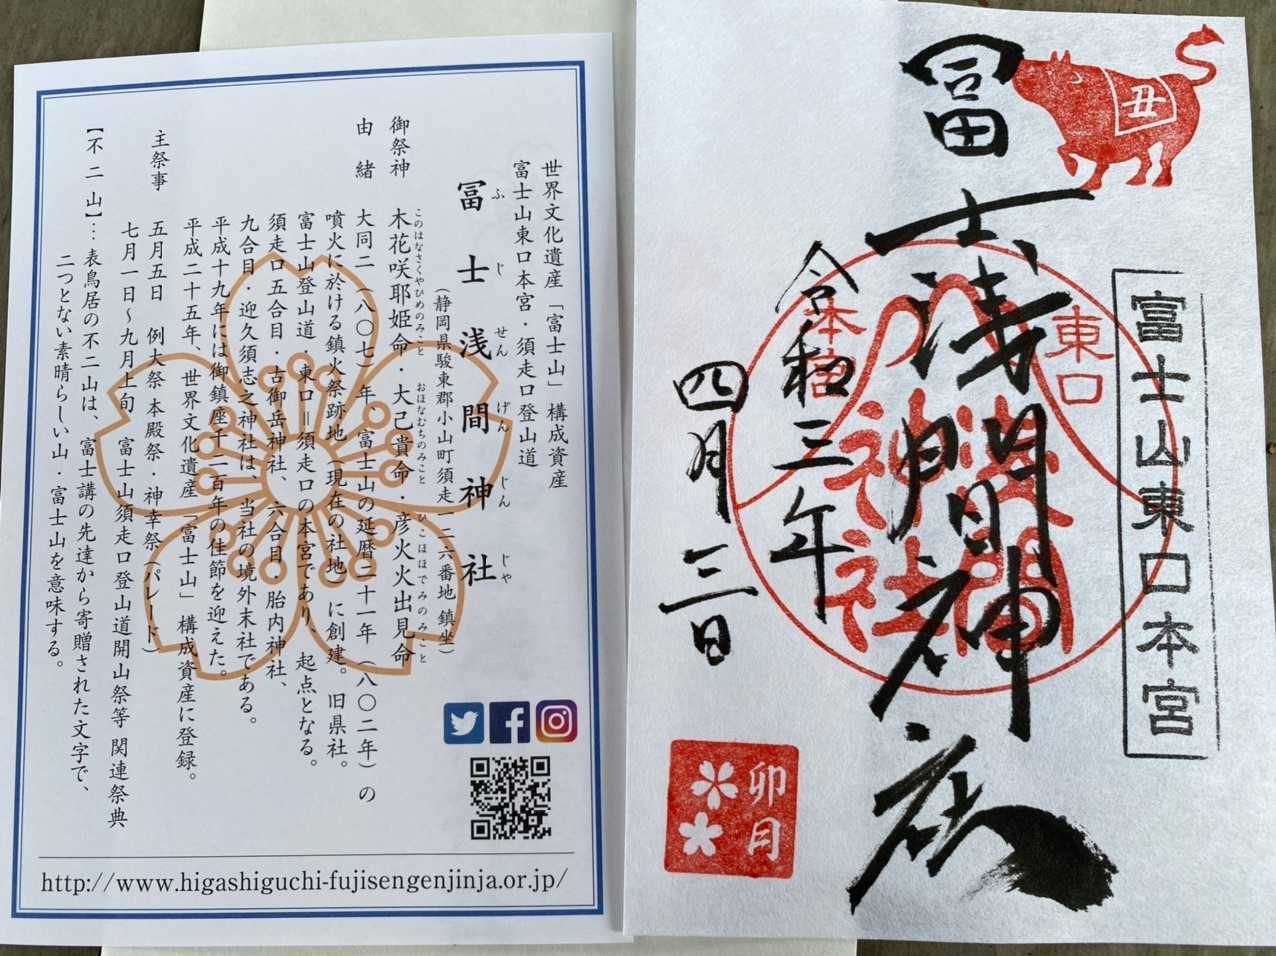 世界文化遺産「富士山」構成資産
富士山東口本宮・須走口登山道
冨士浅間神社
ふじせんげんじんじゃ
(静岡県駿東郡小山町須走一二六番地 鎮坐)
御祭神 木花咲耶姫命・大己貴命・彦火火出見命
このはなさくやひめのみこと おほなむちのみこと ひこほほでみのみこと
由緒 大同二(八〇七)年、富士山の延暦二十一年(八〇二年)の
噴火に於ける鎮火祭跡地(現在の社地)に創建。旧県社。
富士山登山道 東口=須走口の本宮であり、起点となる。
須走口五合目・古御岳神社、六合目・胎内神社、
九合目・迎久須志之神社は、当社の境外末社である。
平成十九年には御鎮座千二百年の佳節を迎えた。
平成二十五年、世界文化遺産「富士山」構成資産に登録。
主祭事 五月五日 例大祭・本殿祭・神幸祭(パレード)
七月1日〜九月上旬 富士山須走口登山道開山祭等 関連祭典
【不二山】…表鳥居の不二山は、富士講の先達から寄贈された文字で、
二つとない素晴らしい山・富士山を意味する。
http://www.higashiguchi-fujisengenjinja.or.jp/
丑
富士山東口本宮
冨士浅間神社
東口
本宮
浅間
神社
令和三年
四月三日
卯月